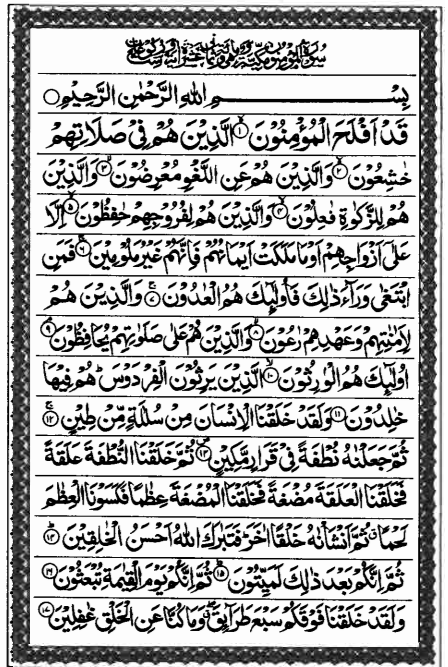 بِسْمِ اللهِ الرَّحْمٰنِ الرَّحِيْمِ
قَدْ اَفْلَحَ الْمُؤْمِنُوْنَ ۱ الَّذِيْنَ هُمْ فِيْ صَلَاتِهِمْ
خٰشِعُوْنَ ۲ وَالَّذِيْنَ هُمْ عَنِ اللَّغْوِ مُعْرِضُوْنَ ۳ وَالَّذِيْنَ
هُمْ لِلزَّكٰوةِ فٰعِلُوْنَ ۴ وَالَّذِيْنَ هُمْ لِفُرُوْجِهِمْ حٰفِظُوْنَ ۵ اِلَّا
عَلٰٓى اَزْوَاجِهِمْ اَوْ مَا مَلَكَتْ اَيْمَانُهُمْ فَاِنَّهُمْ غَيْرُ مَلُوْمِيْنَ ۶ فَمَنِ
ابْتَغٰى وَرَآءَ ذٰلِكَ فَاُولٰٓئِكَ هُمُ الْعٰدُوْنَ ۷ وَالَّذِيْنَ هُمْ
لِاَمٰنٰتِهِمْ وَعَهْدِهِمْ رٰعُوْنَ ۸ وَالَّذِيْنَ هُمْ عَلٰى صَلَوٰتِهِمْ يُحَافِظُوْنَ ۹
اُولٰٓئِكَ هُمُ الْوٰرِثُوْنَ ۱۰ الَّذِيْنَ يَرِثُوْنَ الْفِرْدَوْسَ ط هُمْ فِيْهَا
خٰلِدُوْنَ ۱۱ وَلَقَدْ خَلَقْنَا الْاِنْسَانَ مِنْ سُلٰلَةٍ مِّنْ طِيْنٍ ۱۲
ثُمَّ جَعَلْنٰهُ نُطْفَةً فِيْ قَرَارٍ مَّكِيْنٍ ۱۳ ثُمَّ خَلَقْنَا النُّطْفَةَ عَلَقَةً
فَخَلَقْنَا الْعَلَقَةَ مُضْغَةً فَخَلَقْنَا الْمُضْغَةَ عِظٰمًا فَكَسَوْنَا الْعِظٰمَ
لَحْمًا ثُمَّ اَنْشَاْنٰهُ خَلْقًا اٰخَرَ ط فَتَبٰرَكَ اللهُ اَحْسَنُ الْخٰلِقِيْنَ ۱۴
ثُمَّ اِنَّكُمْ بَعْدَ ذٰلِكَ لَمَيِّتُوْنَ ۱۵ ثُمَّ اِنَّكُمْ يَوْمَ الْقِيٰمَةِ تُبْعَثُوْنَ ۱۶
وَلَقَدْ خَلَقْنَا فَوْقَكُمْ سَبْعَ طَرَآئِقَ وَمَا كُنَّا عَنِ الْخَلْقِ غٰفِلِيْنَ ۱۷